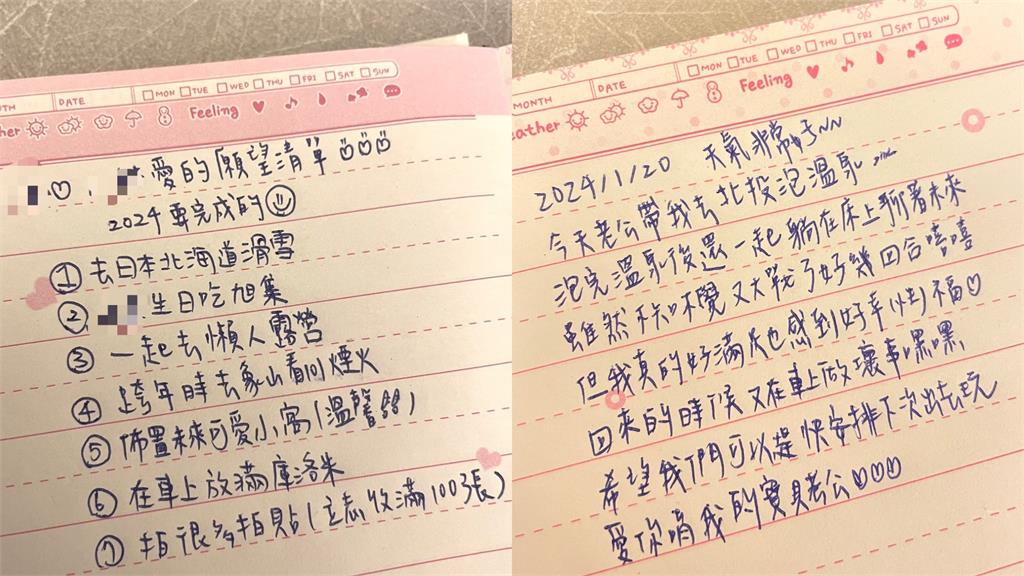 MONTH DATE MON TUE WED THU FRI SAT SUN
Weather Feeling
愛的「願望清單
2024要完成的
① 去日本北海道滑雪
② 生日吃旭集
③ 一起去懶人露營
④ 跨年時去象山看煙火
⑤ 佈置未來可愛小窩(溫馨)
⑥ 在車上放滿庫洛米
⑦ 拍很多拍貼(立志收滿100張)
MONTH DATE MON TUE WED THU FRI SAT SUN
Weather Feeling
2024/1/20 天氣非常好~~
今天老公帶我去北投泡溫泉
泡完溫泉後還一起躺在床上聊著未來
雖然不知不覺又大戰了好幾回合嘻嘻
但我真的好滿足也感到好幸(性)福♡
回來的時候又在車上做壞事嘿嘿
希望我們可以趕快安排下次出去玩
愛你唷我的寶貝老公♡♡♡